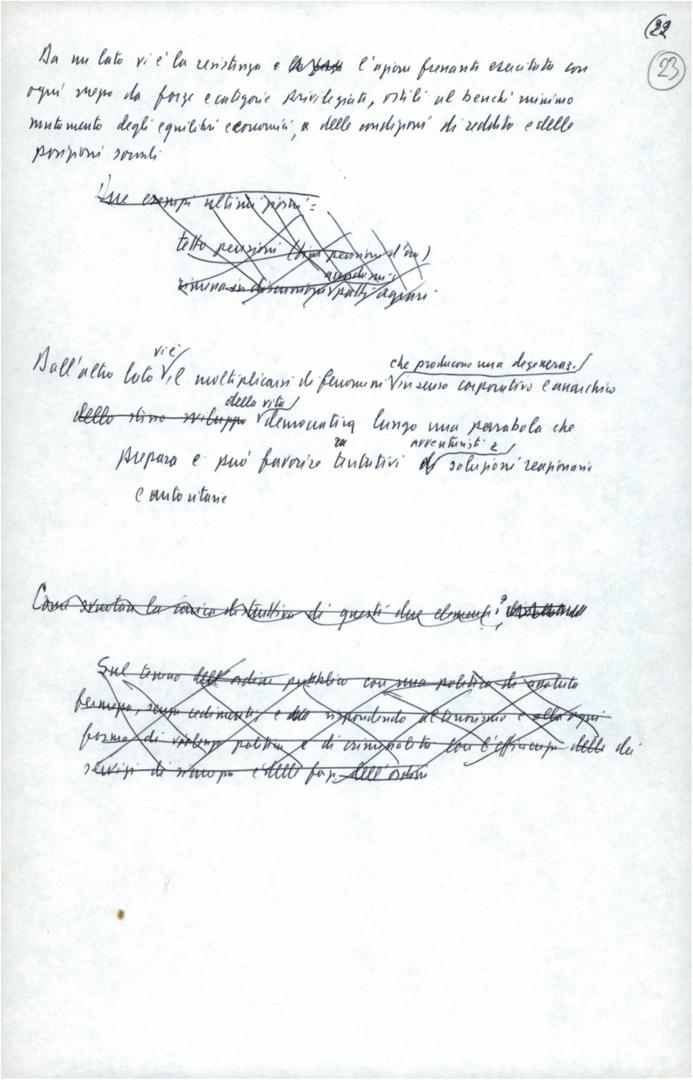 22
23
Da un lato vi è la resistenza e l'azione frenante esercitata con
ogni mezzo da forze e categorie privilegiate, ostili al benché minimo
mutamento degli equilibri economici, e delle condizioni di reddito e delle
posizioni sociali
Due esempi ultimissimi:
tetto pensioni (dim pensioni d'oro)
patti agrari
vi è
che producono una degeneraz.
Dall'altro lato il moltiplicarsi di fenomeni in senso corporativo e anarchico
della vita
dello stesso sviluppo democratica lungo una parabola che
avventuristi e
prepara e può favorire tentativi di soluzioni reazionarie
e autoritarie
Come svuotare la carica distruttiva di questi due elementi?
Sul terreno dell'ordine pubblico con una politica di assoluta
fermezza, senza cedimenti, e rispondendo al terrorismo e alla ogni
forma di violenza politica e di criminalità con l'efficienza delle dei
servizi di sicurezza e delle forze dell'ordine